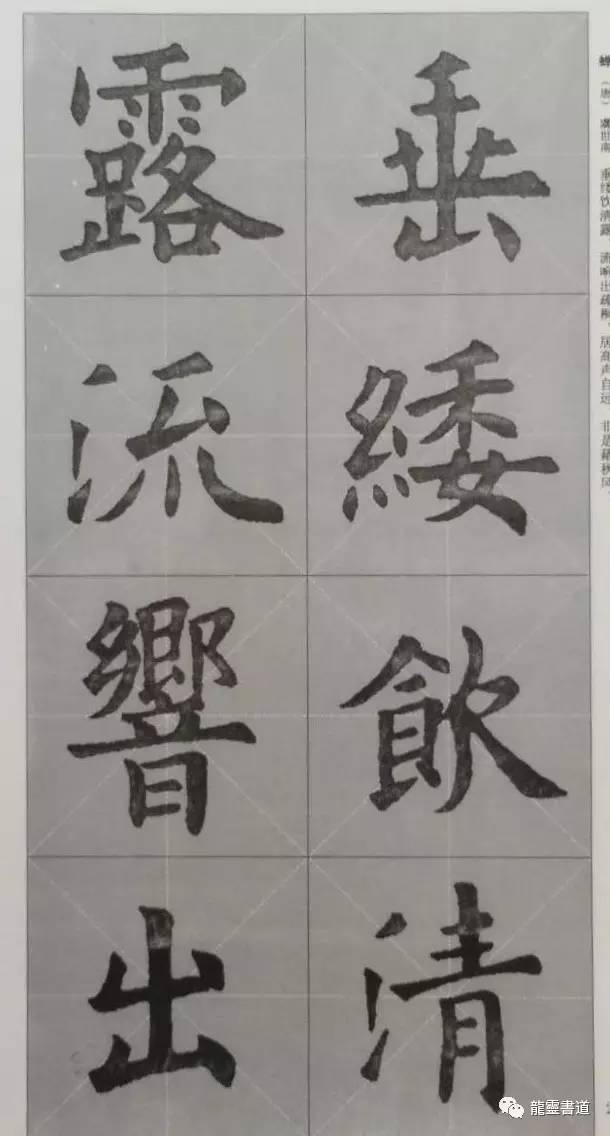 垂緌飲清
露流響出
蝉（唐）虞世南 垂緌饮清露 流响出疏桐 居高声自远 非是藉秋风
龍靈書道